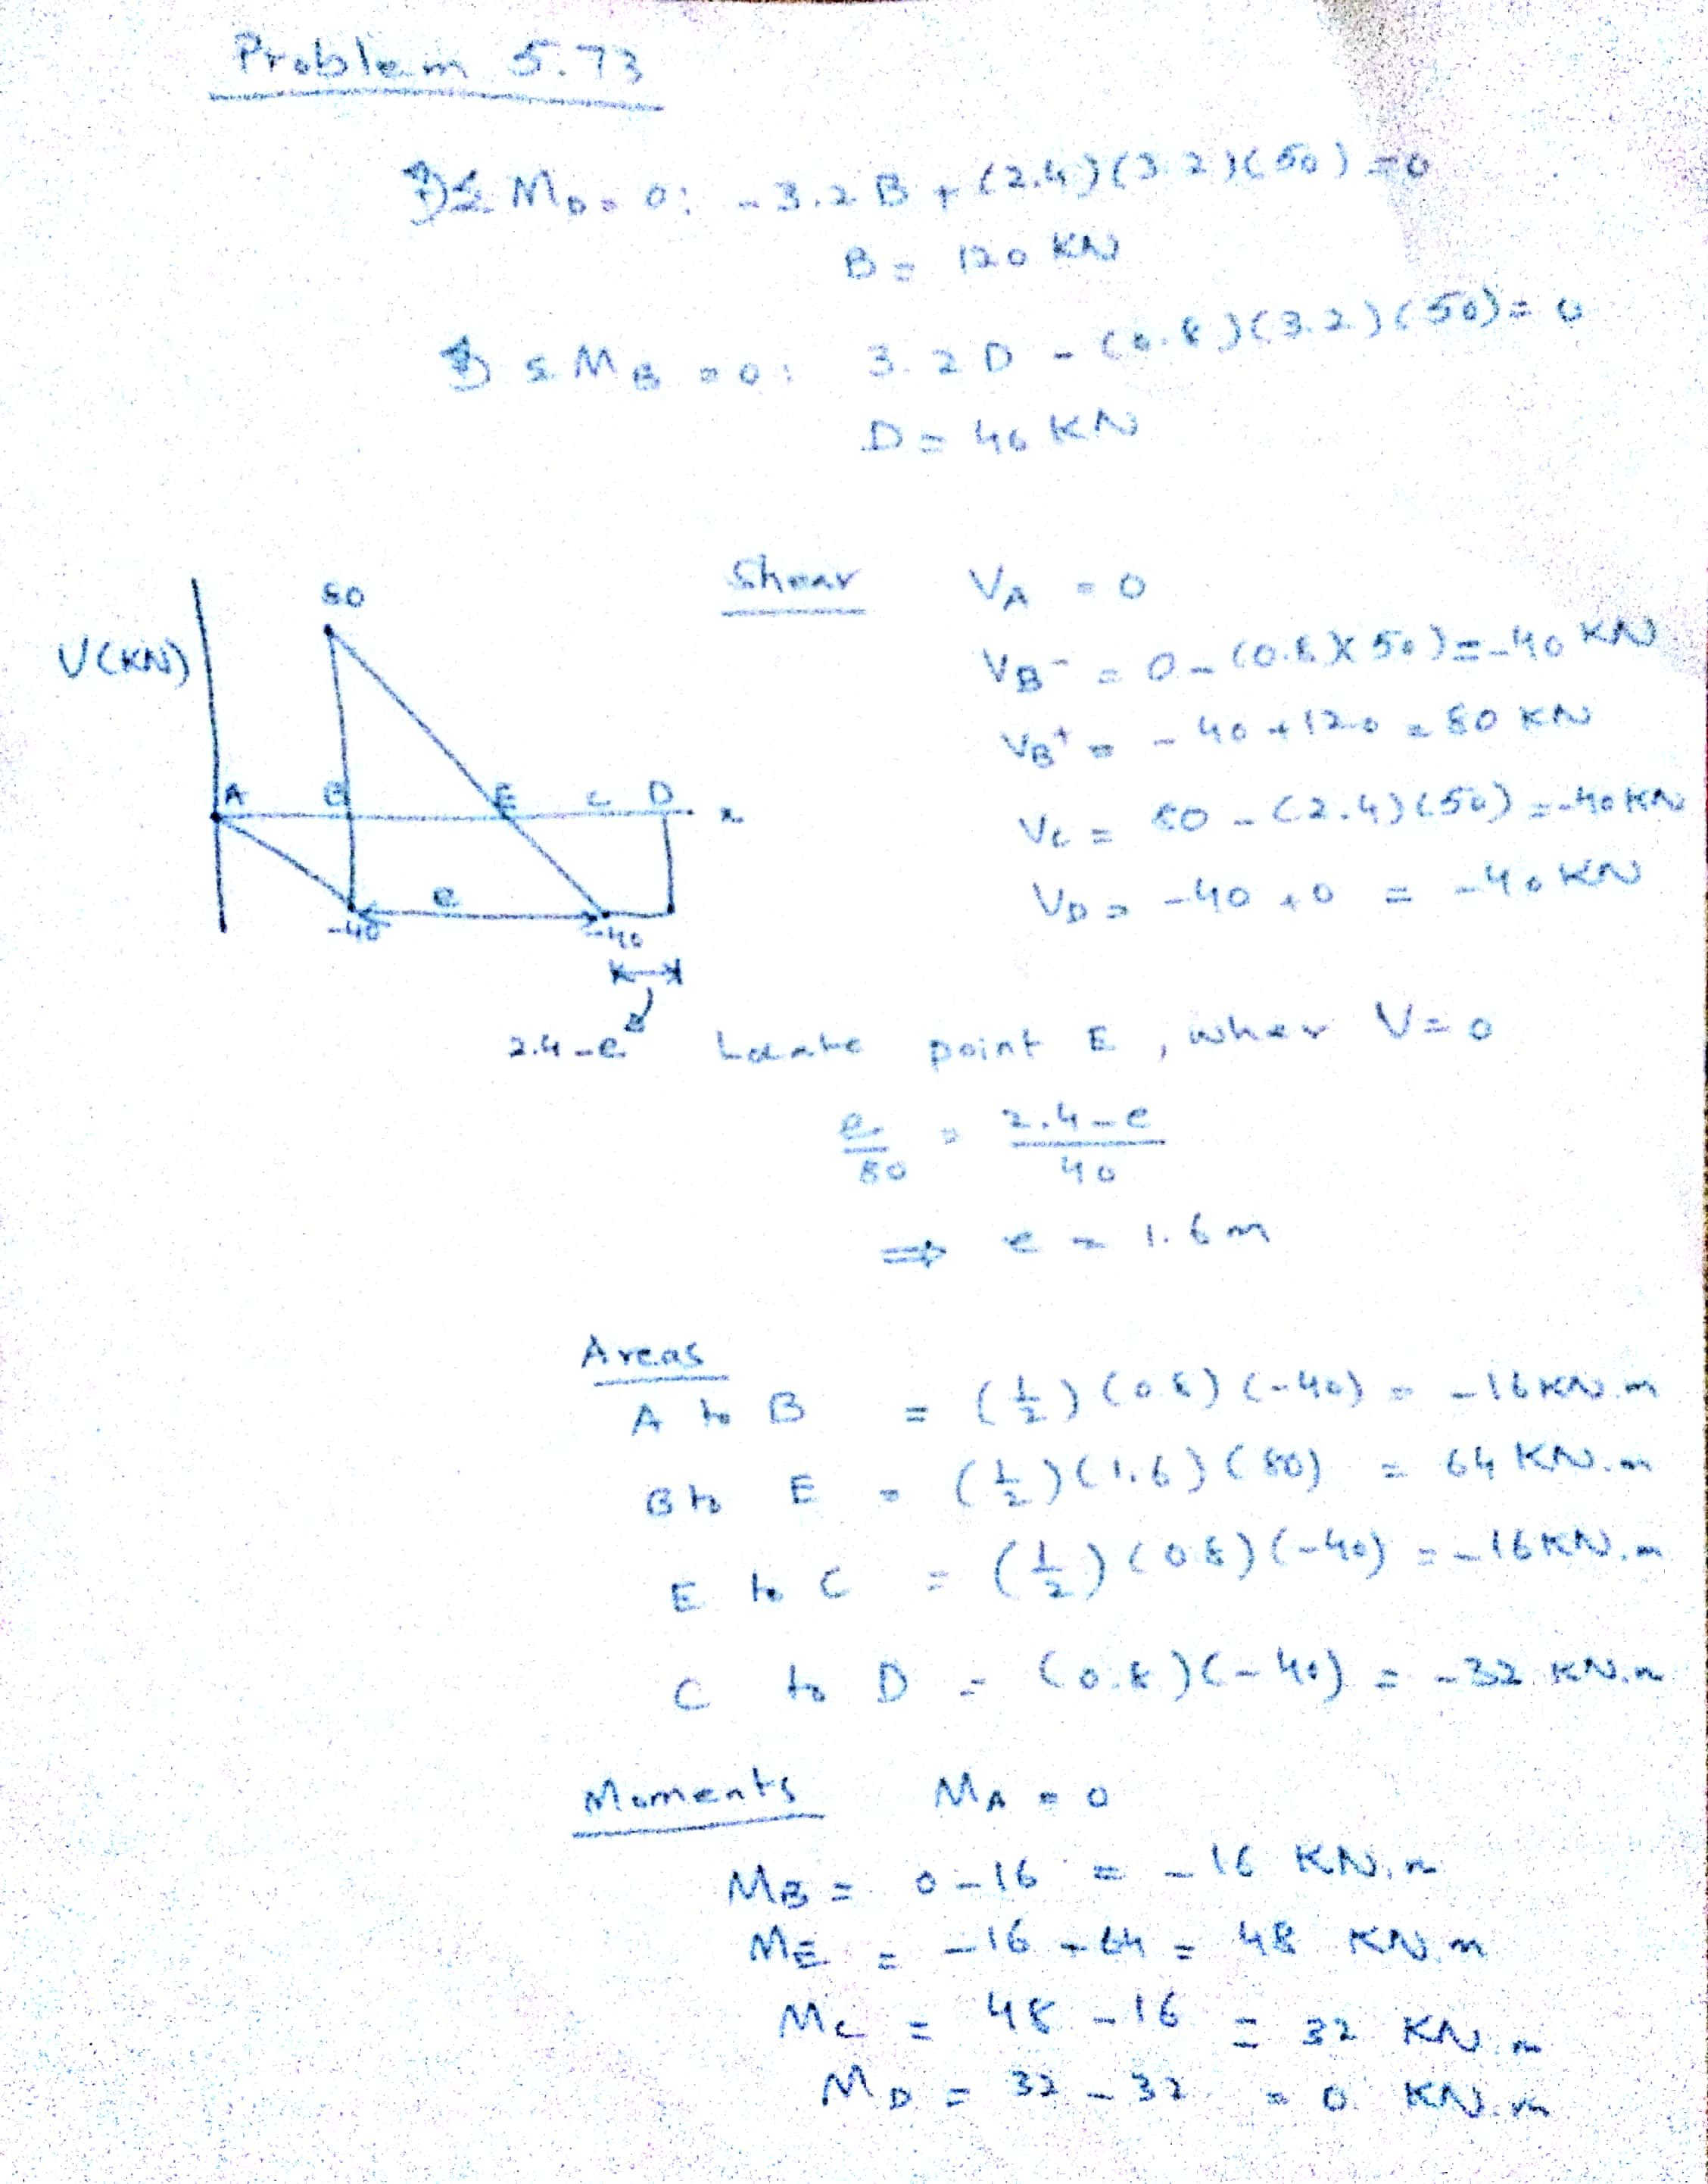 Problem 5.73
+) Σ M_D = 0: -3.2 B + (2.4)(3.2)(50) = 0
B = 120 KN
+) Σ M_B = 0: 3.2 D - (0.8)(3.2)(50) = 0
D = 40 KN
Shear V_A = 0
V_B^- = 0 - (0.8)(50) = -40 KN
V_B^+ = -40 + 120 = 80 KN
V_C = 80 - (2.4)(50) = -40 KN
V_D = -40 + 0 = -40 KN
V(KN)
80
A B E C D x
e
-40 -40
2.4-e
Locate point E, wher V=0
e/80 = 2.4-e/40
⇒ e = 1.6 m
Areas
A to B = (1/2)(0.8)(-40) = -16 KN.m
B to E = (1/2)(1.6)(80) = 64 KN.m
E to C = (1/2)(0.8)(-40) = -16 KN.m
C to D = (0.8)(-40) = -32 KN.m
Moments M_A = 0
M_B = 0 - 16 = -16 KN.m
M_E = -16 + 64 = 48 KN.m
M_C = 48 - 16 = 32 KN.m
M_D = 32 - 32 = 0 KN.m